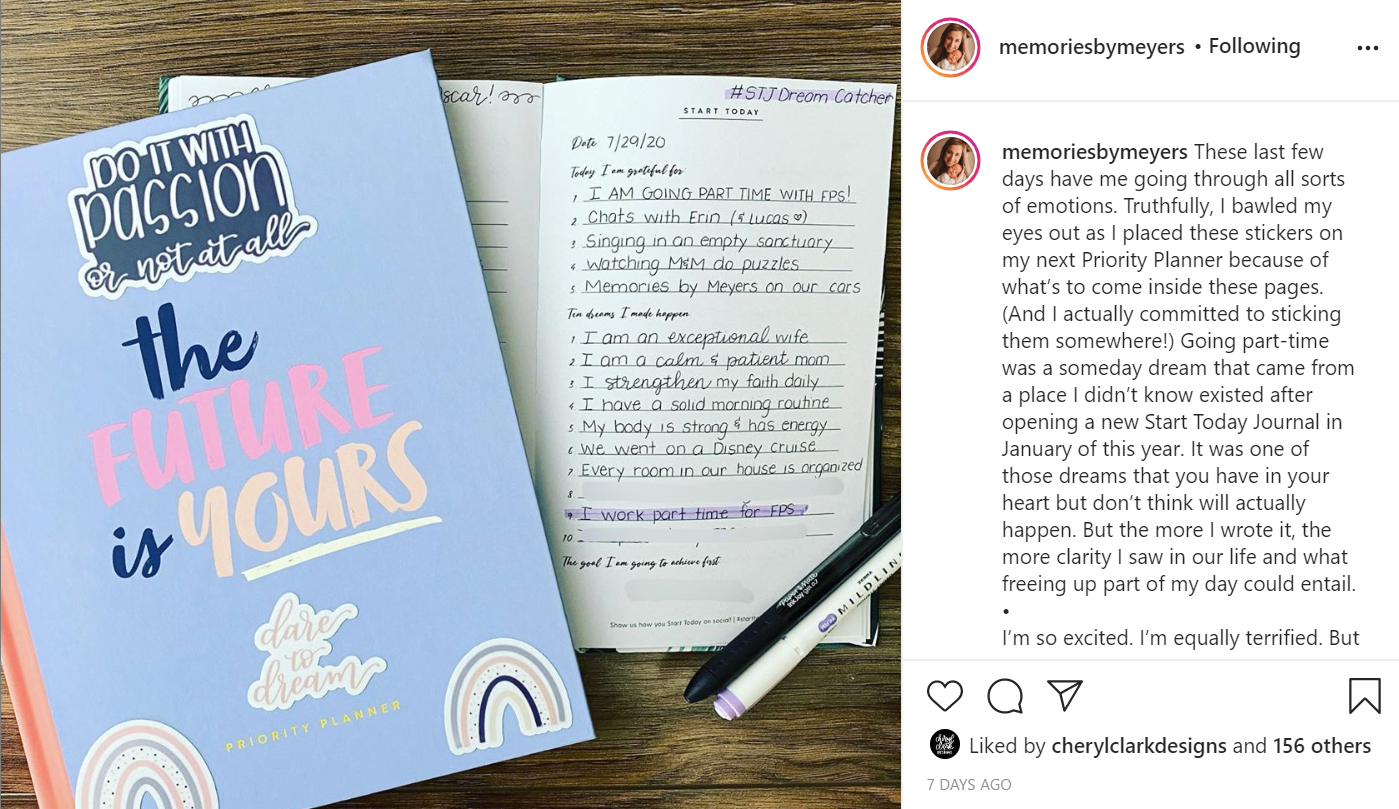 DO IT WITH
passion
or not at all
the
FUTURE
is YOURS
dare
to
dream
PRIORITY PLANNER
scar!
#STJDream Catcher
START TODAY
Date 7/29/20
Today I am grateful for
1 I AM GOING PART TIME WITH FPS!
2 Chats with Erin (& Lucas ♡)
3 Singing in an empty sanctuary
4 Watching M&M do puzzles
5 Memories by Meyers on our cars
Ten dreams I made happen
1 I am an exceptional wife
2 I am a calm & patient mom
3 I strengthen my faith daily
4 I have a solid morning routine
5 My body is strong & has energy
6 We went on a Disney cruise
7 Every room in our house is organized
8
9 I work part time for FPS.
10
The goal I am going to achieve first
Show us how you Start Today on social! #start
Paper Mate
InkJoy Gel 0.7
ZEBRA
MILDLIN
memoriesbymeyers • Following
memoriesbymeyers These last few
days have me going through all sorts
of emotions. Truthfully, I bawled my
eyes out as I placed these stickers on
my next Priority Planner because of
what’s to come inside these pages.
(And I actually committed to sticking
them somewhere!) Going part-time
was a someday dream that came from
a place I didn’t know existed after
opening a new Start Today Journal in
January of this year. It was one of
those dreams that you have in your
heart but don’t think will actually
happen. But the more I wrote it, the
more clarity I saw in our life and what
freeing up part of my day could entail.
•
I’m so excited. I’m equally terrified. But
Liked by cherylclarkdesigns and 156 others
7 DAYS AGO